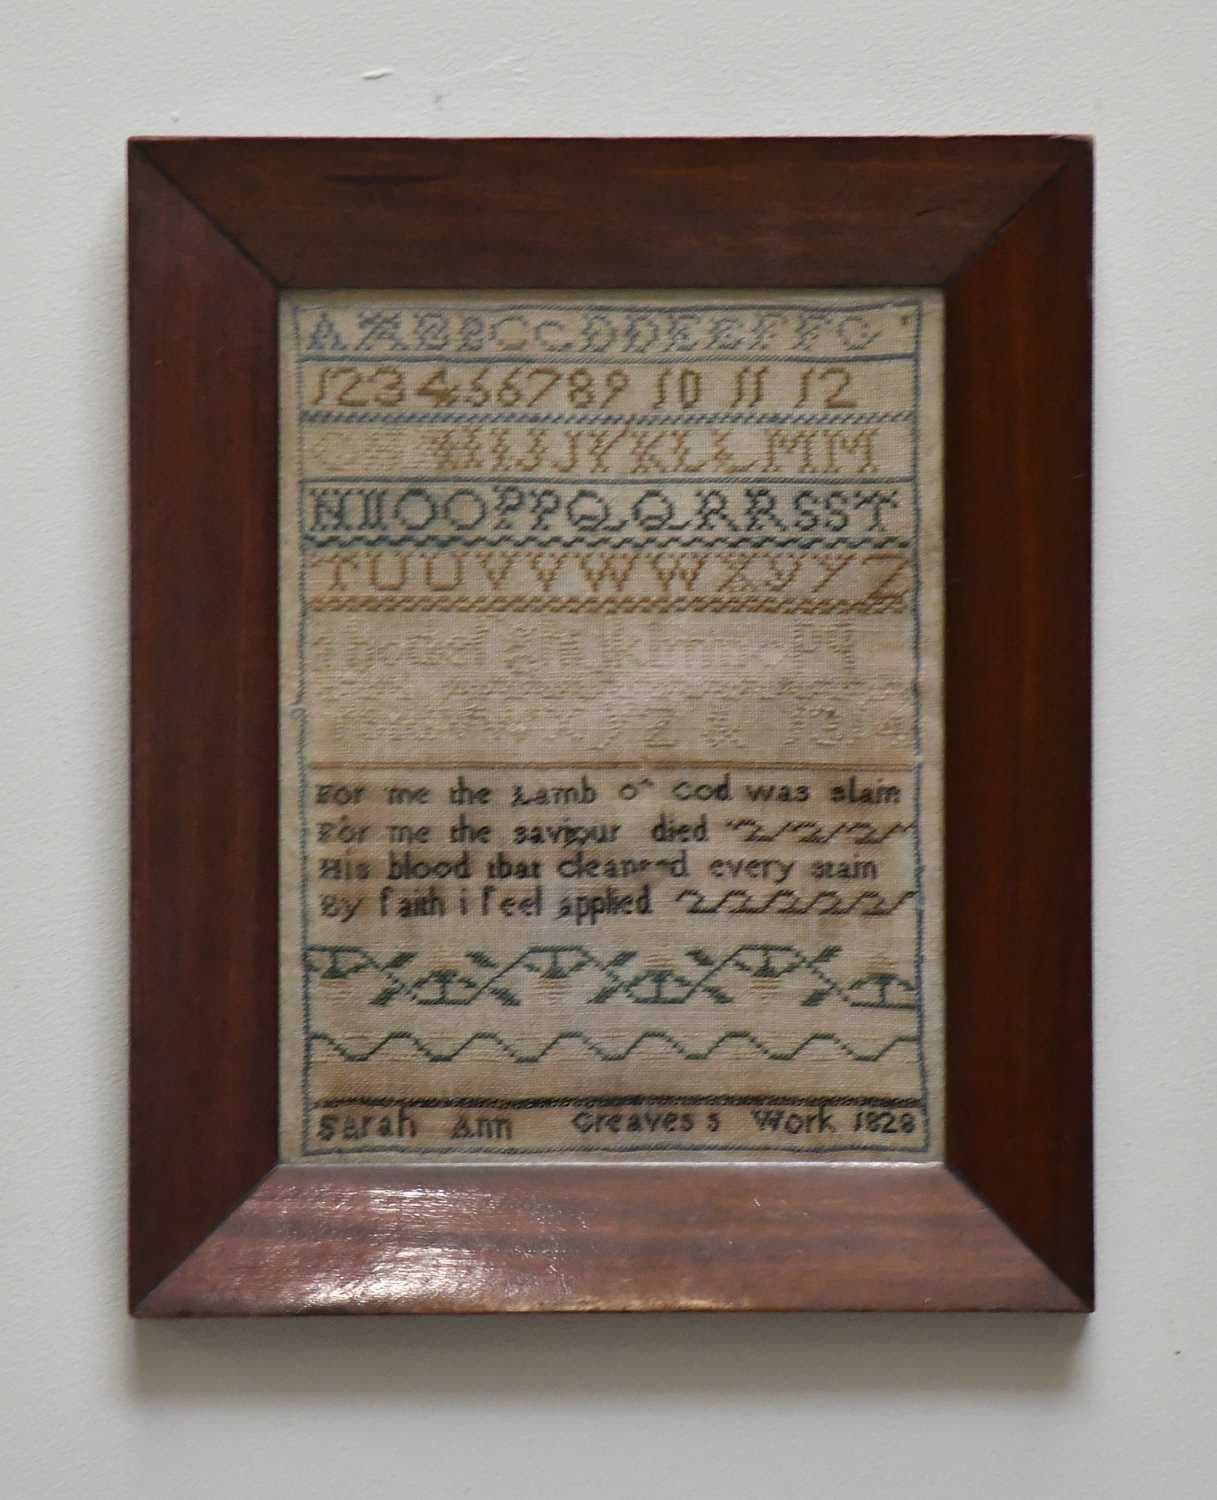 A A B B C C D D E E F F G
1 2 3 4 5 6 7 8 9 10 11 12
G H H I J J K L L M M
N N O O P P Q Q R R S S T
T U U V V W W X Y Y Z
x y z &
For me the Lamb of God was slain
For me the saviour died
His blood that cleansed every stain
By faith i feel applied
Sarah Ann Greaves s Work 1828